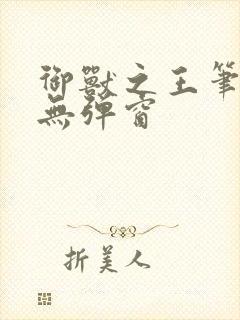 御獸之王筆
無彈窗
折美人